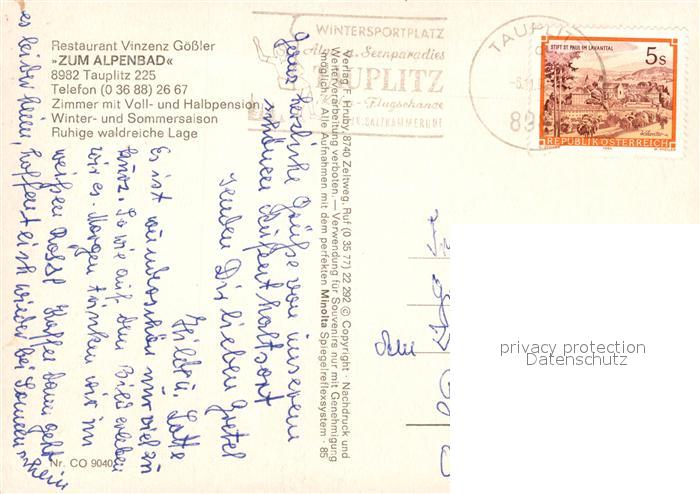 Restaurant Vinzenz Gößler
»ZUM ALPENBAD«
8982 Tauplitz 225
Telefon (0 36 88) 26 67
Zimmer mit Voll- und Halbpension
Winter- und Sommersaison
Ruhige waldreiche Lage
WINTERSPORTPLATZ
Seenparadies
Flugschanze
SALZKAMMERGUT
TAUPLITZ
STIFT ST. PAUL IM LAVANTTAL
5s
REPUBLIK ÖSTERREICH
Verlag F. Hruby, 8740 Zeltweg, Ruf (0 35 77) 22 292 © Copyright · Nachdruck und
Weiterverarbeitung verboten. — Verwendung für Souvenirs nur mit Genehmigung
möglich. · Alle Aufnahmen mit dem perfekten Minolta Spiegelreflexsystem · 85
herzliche Grüße von unserem
schönen Aufenthaltsort
senden Dir lieben Gretel
Hilde u. Lotte
Es ist wunderschön nur viel zu
kurz. So wie auf dem Bild erleben
wir es. Morgen trinken wir im
weißen Rössl Kaffee dann geht
es leider heim, hoffentlich wieder bei Sonnenschein
Nr. CO 9040
privacy protection
Datenschutz